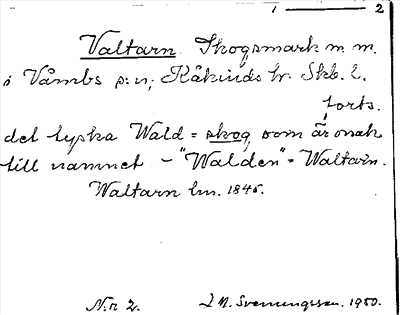 1 — 2
Valtarn Skogsmark m. m.
i Våmbs s:n, Kåkinds hr. Skb. l.
forts.
det tyska Wald = skog, som är orsak
till namnet - "Walden" = Waltarn.
Waltarn lm. 1845.
N:r 2. Svenningsson. 1950.